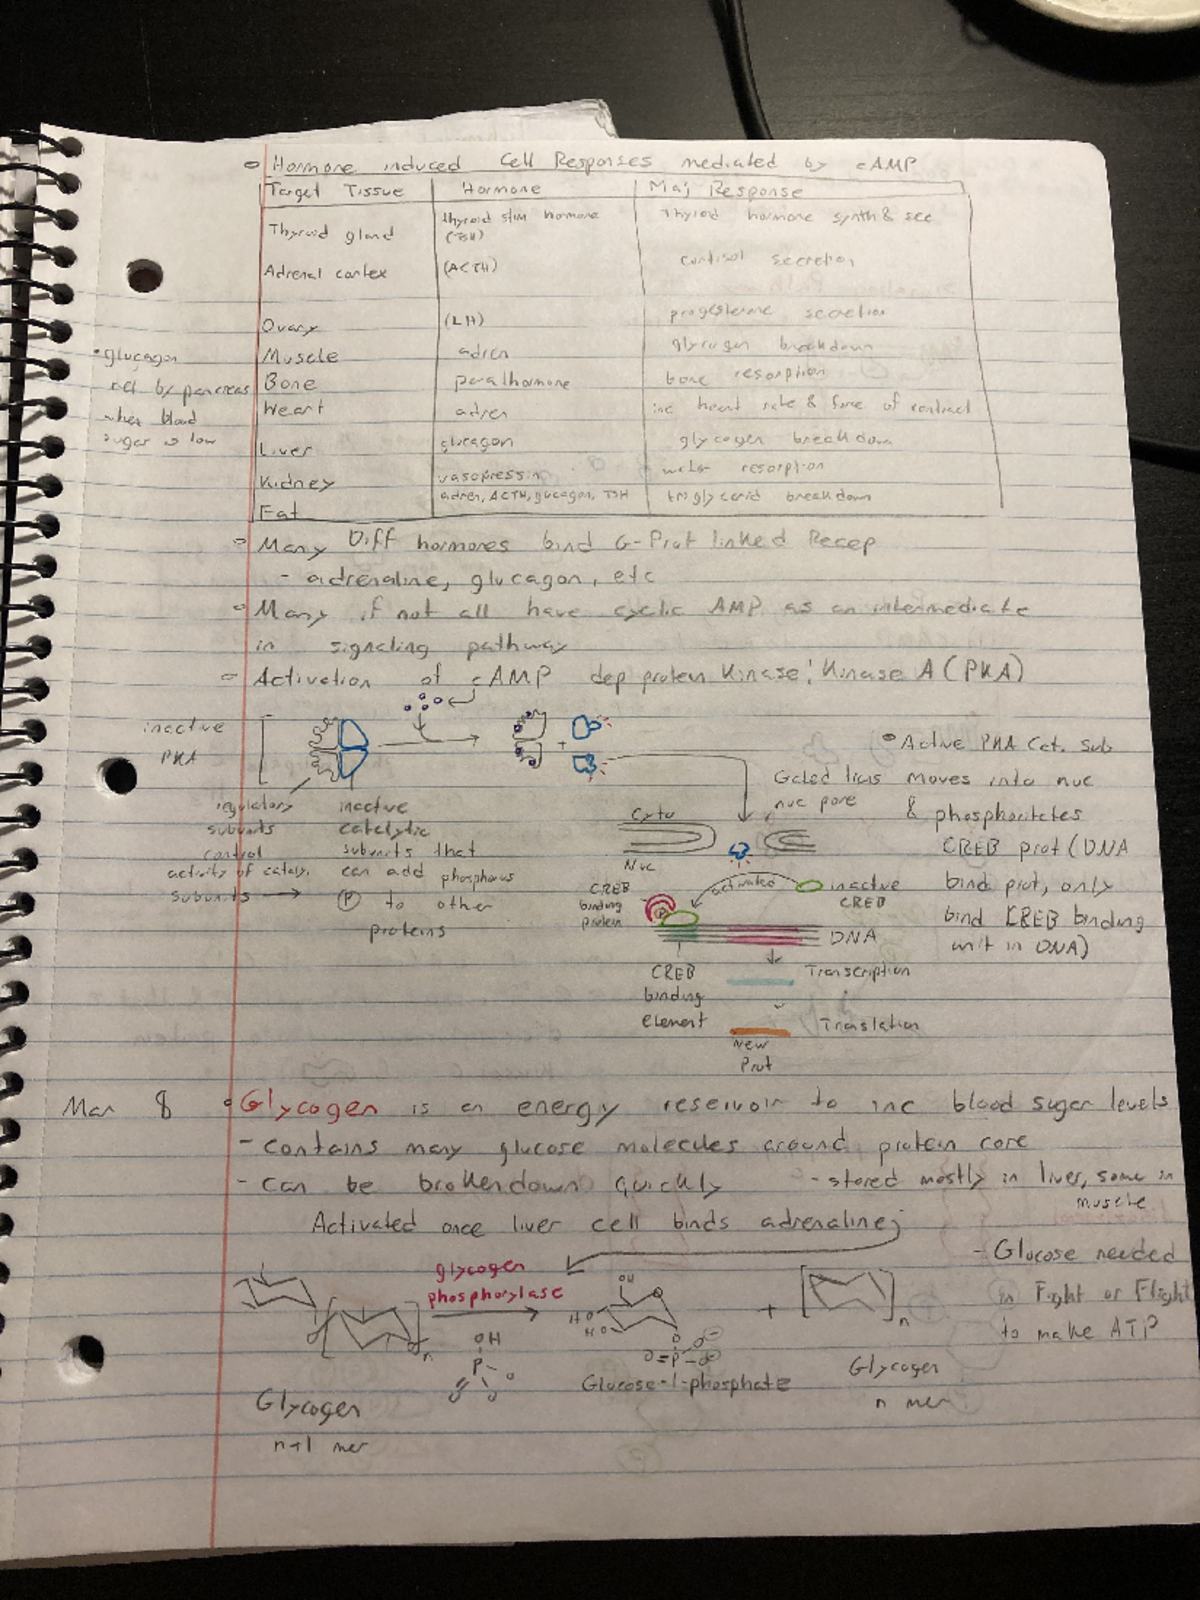 Hormone induced Cell Responses mediated by cAMP
Target Tissue Hormone Maj Response
Thyroid gland thyroid stim hormone (TSH) Thyroid hormone synth & sec
Adrenal cortex (ACTH) cortisol secretion
Ovary (LH) progesterone secretion
Muscle adren glycogen breakdown
Bone parathormone bone resorption
Heart adren inc heart rate & force of contract
Liver glucagon glycogen breakdown
Kidney vasopressin water resorption
Fat adren, ACTH, glucagon, TSH triglycerid breakdown
• glucagon
rel by pancreas
when blood
sugar is low
Many Diff hormones bind G-Prot linked Recep
- adrenaline, glucagon, etc
Many if not all have cyclic AMP as an intermediate
in signaling pathway
Activation of cAMP dep protein Kinase: Kinase A (PKA)
inactive
PKA
regulatory
subunits
control
activity of cataly.
subunits
inactive
catalytic
subunits that
can add phosphorus
P to other
proteins
Active PKA Cat. sub
moves into nuc
& phosphorilates
CREB prot (DNA
bind prot, only
bind CREB binding
unit in DNA)
Gated
nuc pore
Cyto
Nuc
CREB
binding
protein
P
activated
inactive
CREB
DNA
CREB
binding
element
Transcription
Translation
New
Prot
Mar 8 Glycogen is an energy reservoir to inc blood sugar levels
- contains many glucose molecules around protein core
- can be brokendown quickly - stored mostly in liver, some in
muscle
Activated once liver cell binds adrenaline;
- Glucose needed
in Fight or Flight
to make ATP
glycogen
phosphorylase
n
OH
P
O
O
O
OH
O
HO
HO
O
O=P-O
O
+
n
Glycogen
n+1 mer
Glucose-1-phosphate
Glycogen
n mer